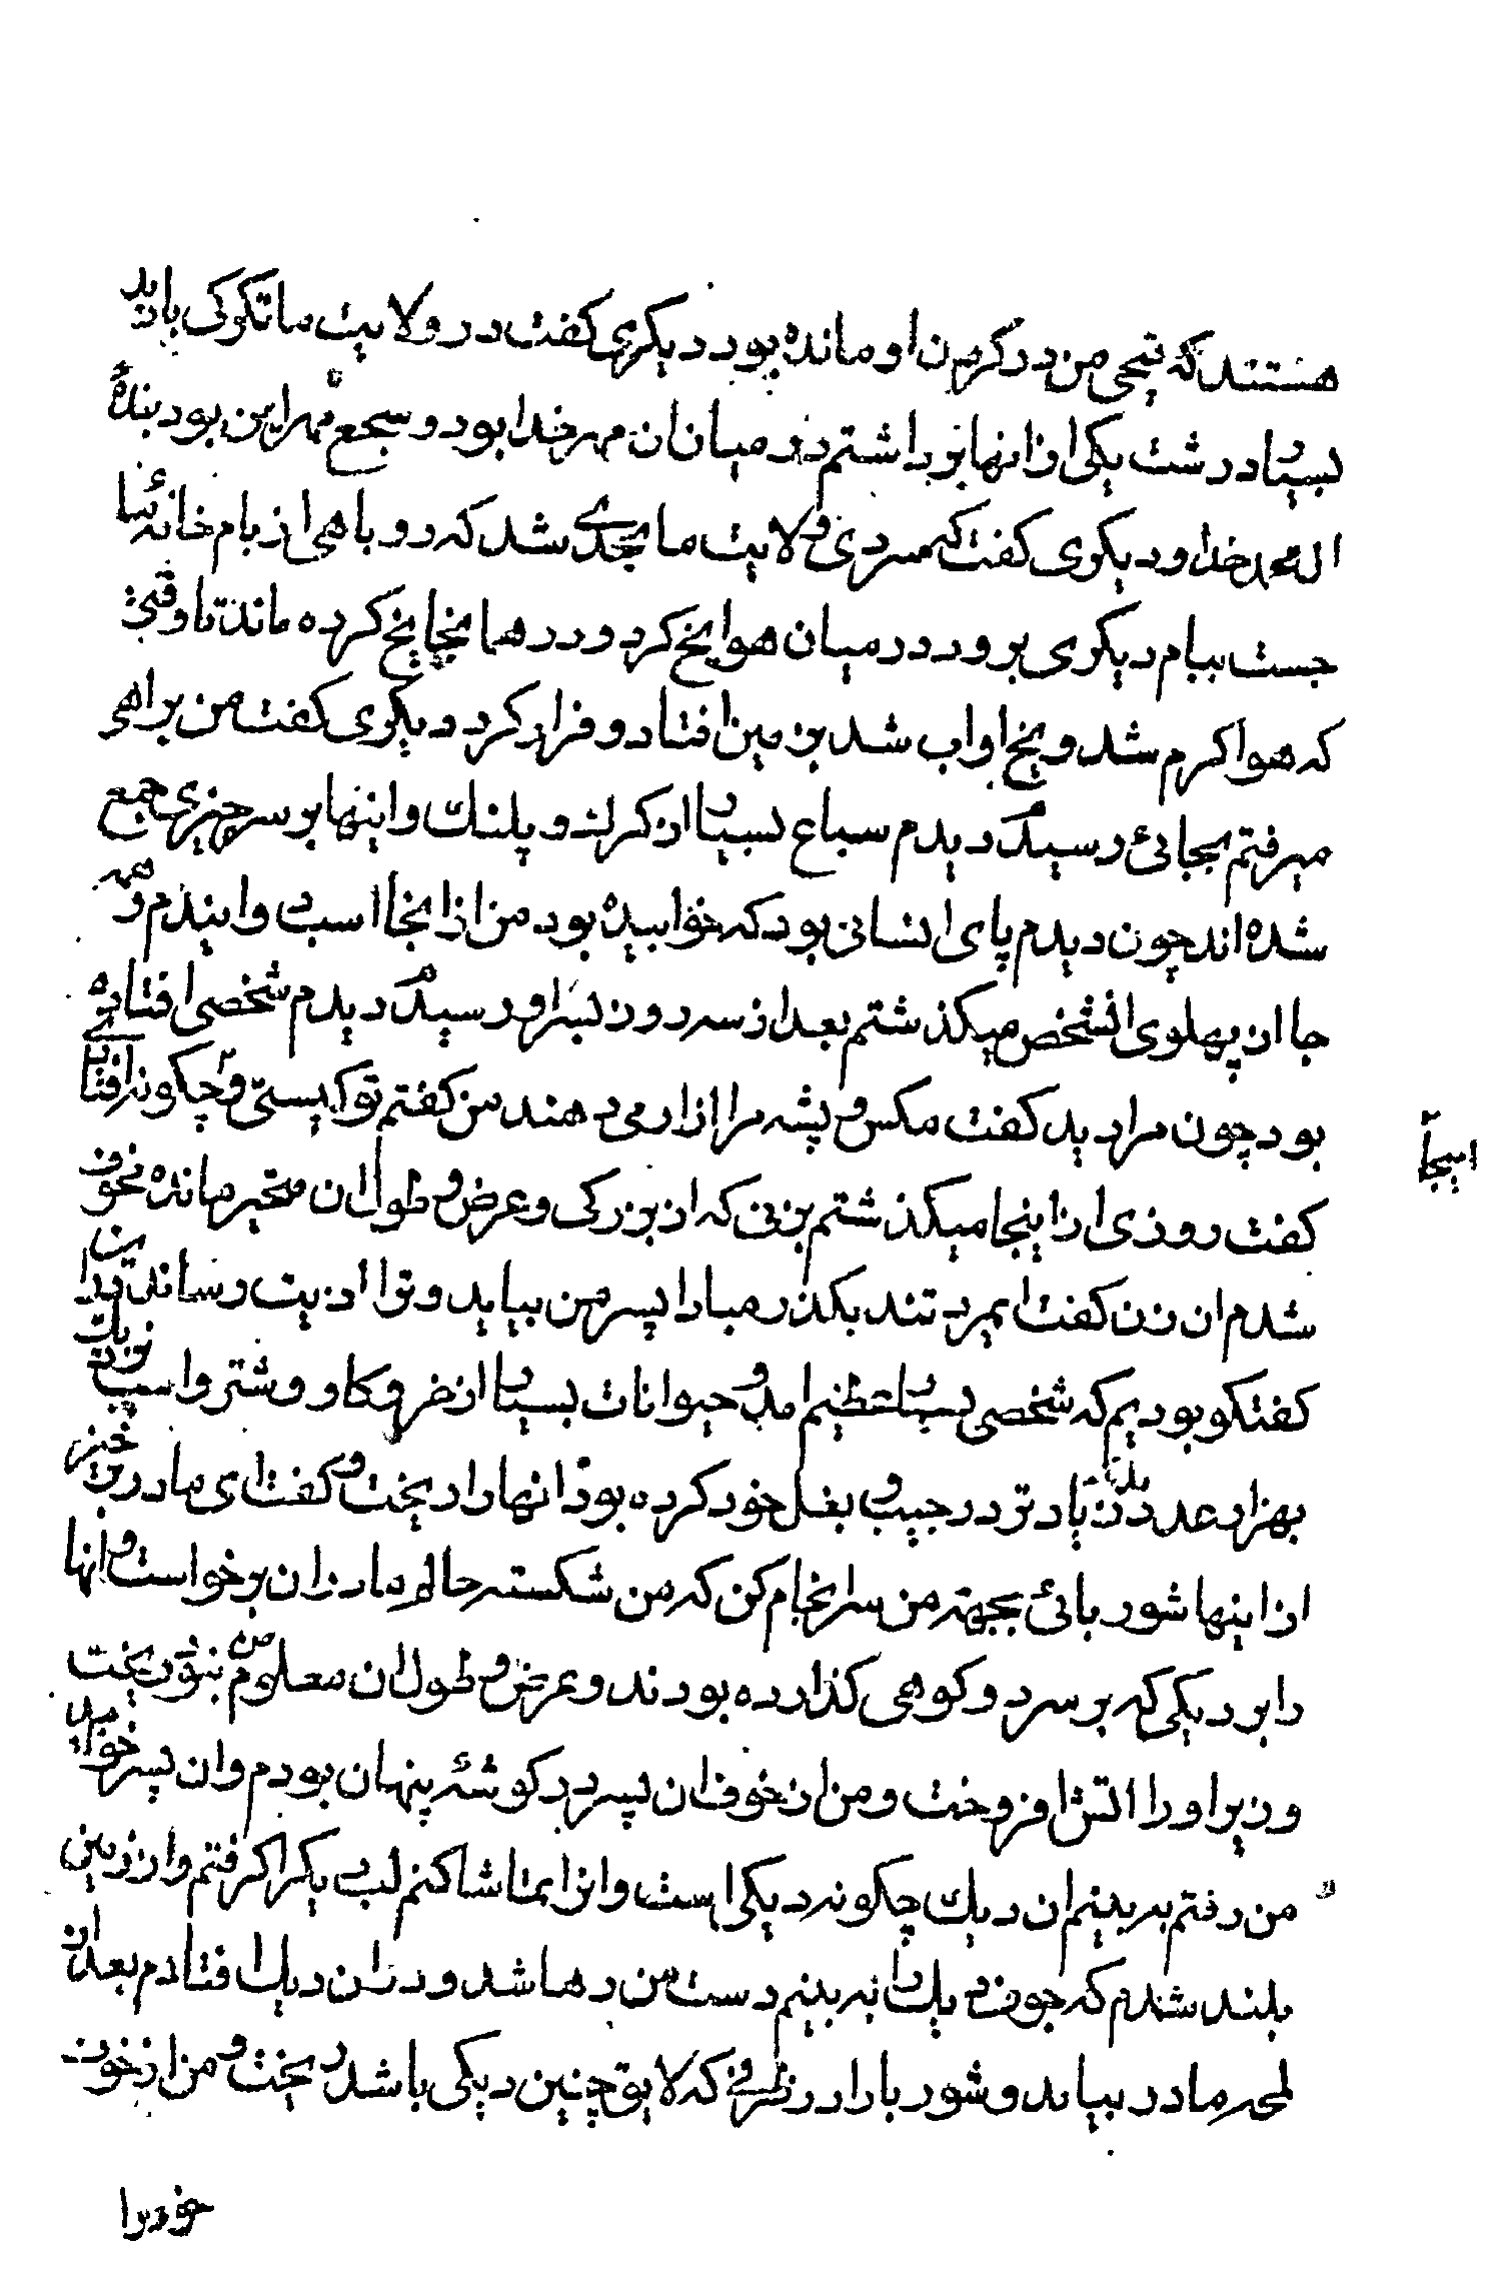 هستند که نیمی من در کرمن او مانده بود دیکری کفت در ولایت ما تکرکی بارید
بسیار درشت یکی از انها بر داشتم در میان ان مهر خدا بود و سجع مهر این بود بنده
اله محمد خدا و دیکری کفت که سردی ولایت ما بحدی شد که روباهی از بام خانه
جست ببام دیکری برود در میان هوا یخ کرد و در همانجا یخ کرده ماند تا وقتی
که هوا کرم شد و یخ او اب شد بزمین افتاد و فرار کرد دیکری کفت من براهی
میرفتم بجائی رسیدم دیدم سباع بسیار از کرک و پلنک و اینها بر سر چیزی جمع
شده اند چون دیدم پای انسانی بود که خوابیده بود من از انجا اسب دوانیدم و همه
جا از پهلوی انشخص میکذشتم بعد از سه روز بسر او رسیدم دیدم شخصی افتاده
بود چون مرا دید کفت مکس و پشه مرا ازار می دهند من کفتم تو کیستی و چکونه افتاده
اینجا
کفت روزی از اینجا میکذشتم بزنی که از بزرکی و عرض و طول ان متحیر مانده بخوف
شدم ان زن کفت ایمرد تند بکذر مبادا پسر من بیاید و ترا اذیت رساند در این
کفتکو بودیم که شخصی بسیار عظیم امد و حیوانات بسیار از خر و کاو و شتر و اسب نزدیک
بهزار عدد بلکه زیادتر در جیب و بغل خود کرده بود انها را ریخت و کفت ای مادر برخیز
از اینها شوربائی بجهة من سرانجام کن که من شکسته حالم مادر ان برخواست و انها
را بر دیکی که بر سر دو کوهی کذارده بودند و عرض و طول ان معلوم من نبود ریخت
و زیر او را اتش افروخت و من از خوف ان پسر در کوشه پنهان بودم و ان پسر خوابید
من رفتم به بینم ان دیک چکونه دیکی است و انرا تماشا کنم لب دیک را کرفتم و از زمین
بلند شدم که جوف دیک را به بینم دست من رها شد و در ان دیک افتادم بعد از
لمحه مادر بیامد و شوربا را در ظرفی که لایق چنین دیکی باشد ریخت و من از خوف
خود را